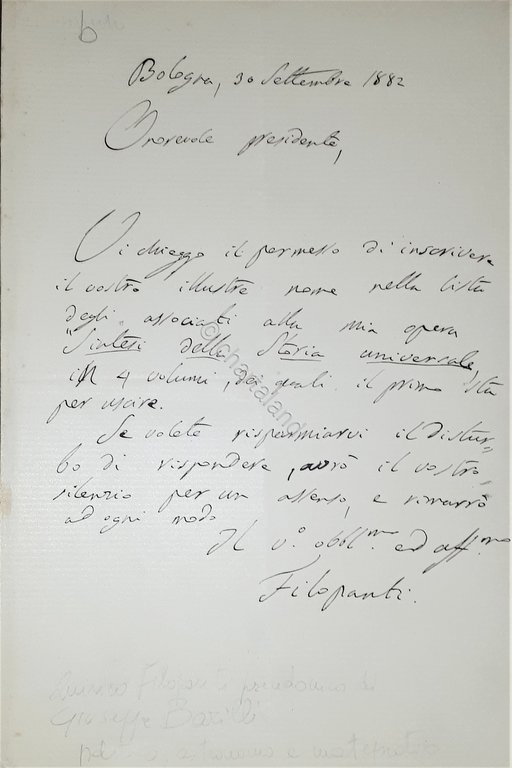 b
Bologna, 30 Settembre 1882
Onorevole presidente,
Vi chieggo il permesso di inscrivere
il vostro illustre nome nella lista
degli associati alla mia opera
"Sintesi della Storia universale,
in 4 volumi, dei quali il primo sta
per uscire.
Se volete risparmiarvi il distur-
bo di rispondere, avrò il vostro
silenzio per un assenso, e rimarrò
ad ogni modo
Il v.º obbl.mo ed aff.mo
Filopanti.
Quirico Filopanti pseudonimo di
Giuseppe Barilli
astronomo e matematico